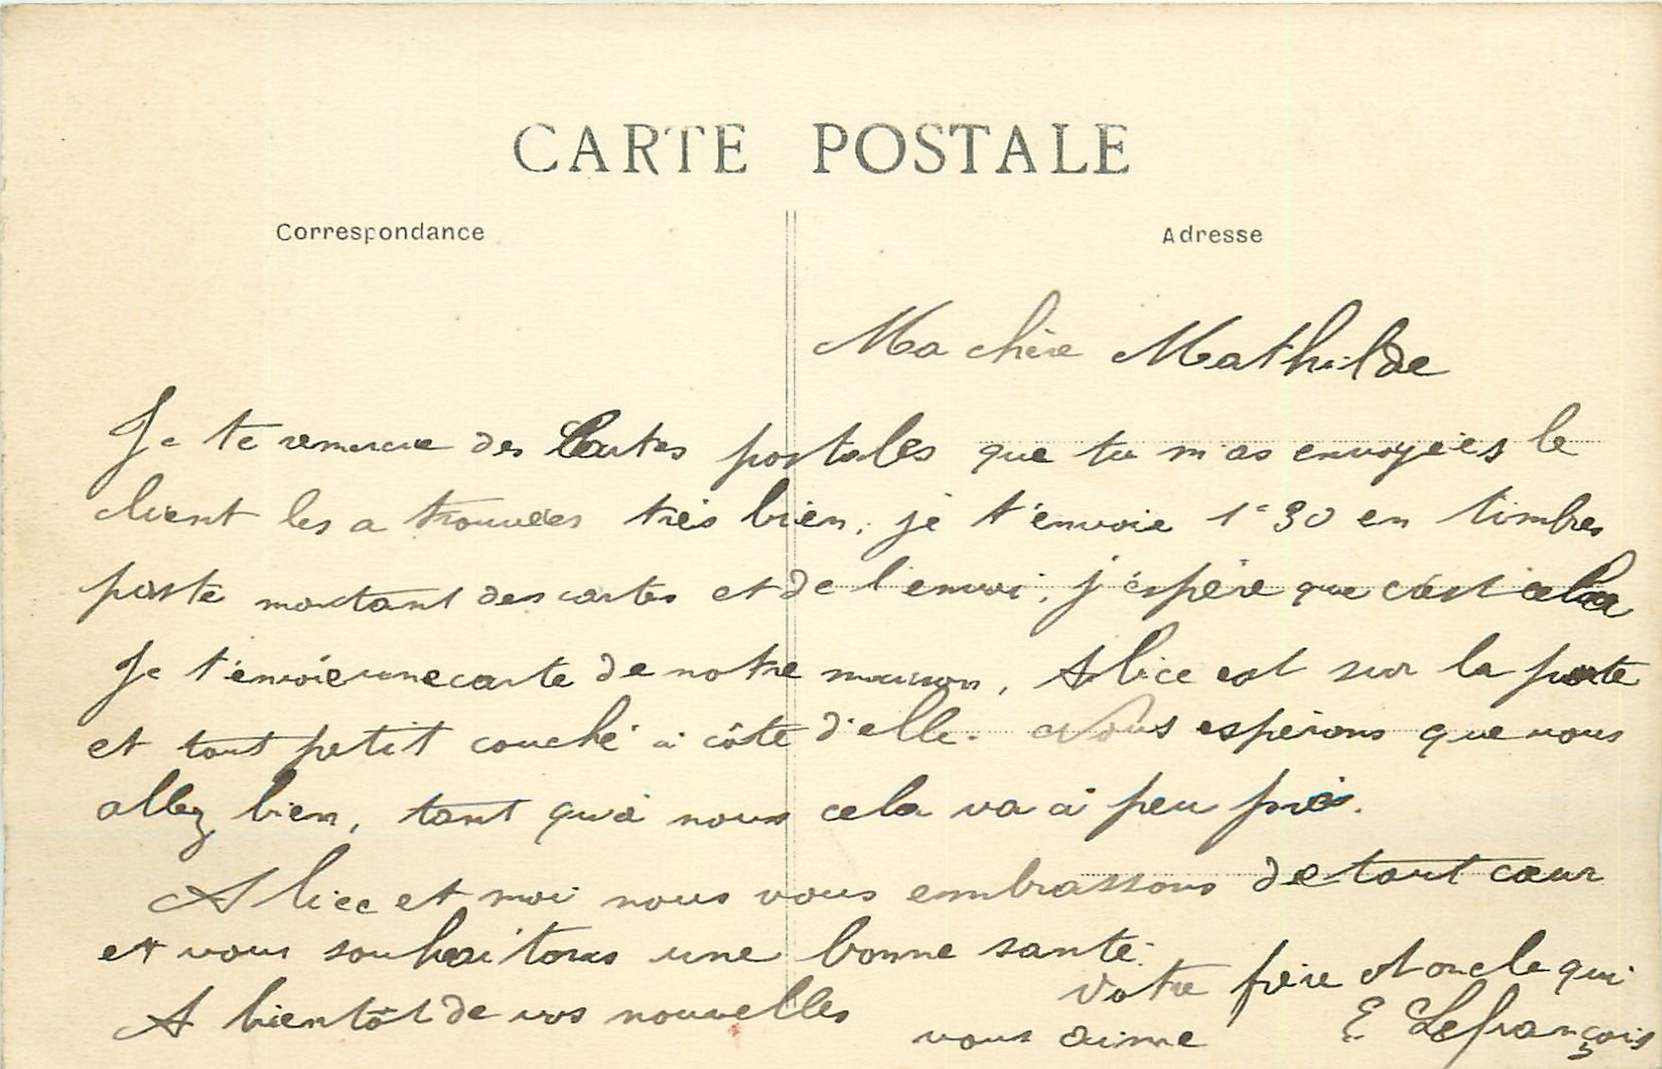 CARTE POSTALE
Correspondance
Adresse
Ma chère Mathilde
Je te remercie des Cartes postales que tu m'as envoyées le
client les a trouvées très bien, je t'envoie 1f30 en timbres
poste montant des cartes et de l'envoi, j'espère que c'est cela
Je t'envoie une carte de notre maison, Alice est sur la porte
et tout petit couché à côté d'elle. Nous espérons que vous
allez bien, tant qu'à nous cela va à peu près.
Alice et moi nous vous embrassons de tout cœur
et vous souhaitons une bonne santé.
A bientôt de vos nouvelles
Votre frère et oncle qui
vous aime
E Lefrançois